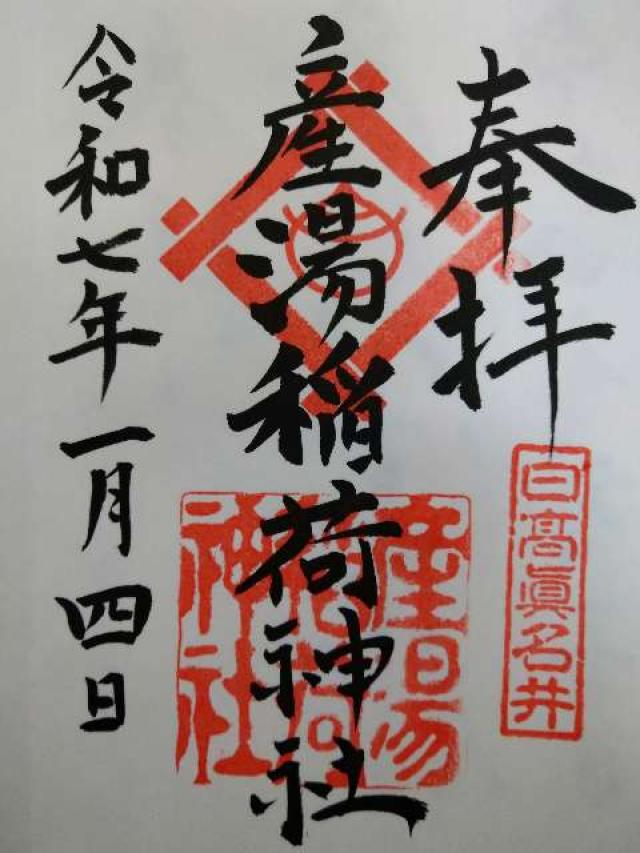 奉拝
日高眞名井
産湯稲荷神社
産湯稲荷神社
令和七年一月四日